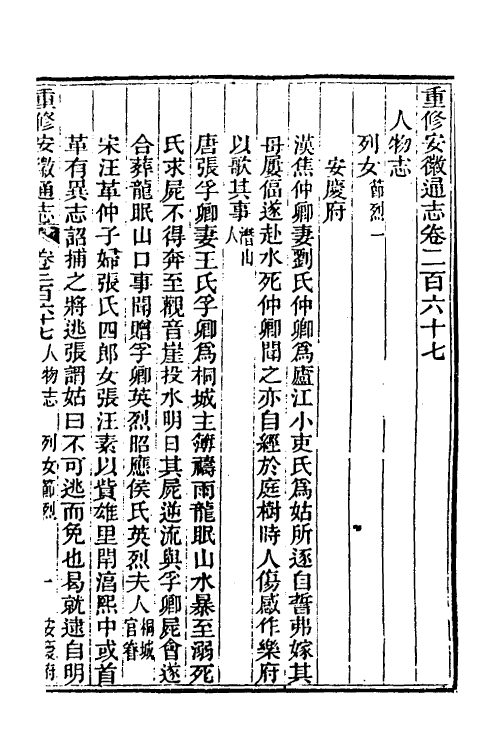 重修安徽通志卷二百六十七
人物志
列女節烈一
安慶府
漢焦仲卿妻劉氏仲卿為廬江小吏氏為姑所逐自誓弗嫁其
母屢偪遂赴水死仲卿聞之亦自經於庭樹時人傷感作樂府
以歌其事潛山人
唐張孚卿妻王氏孚卿為桐城主簿禱雨龍眠山水暴至溺死
氏求屍不得奔至觀音崖投水明日其屍逆流與孚卿屍會遂
合葬龍眠山口事聞贈孚卿英烈昭應侯氏英烈夫人桐城官眷
宋汪革仲子婦張氏四郎女張汪素以貲雄里閈淳熙中或首
革有異志詔捕之將逃張謂姑曰不可逃而免也曷就逮自明
重修安徽通志 卷二百六十七 人物志 列女節烈 一 安慶府